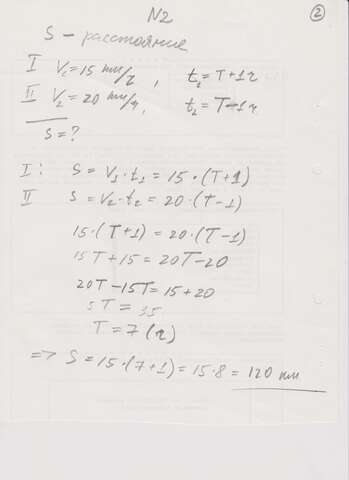 N2
②
S - расстояние
I V₁ = 15 км/ч, t₁ = T+1ч
II V₂ = 20 км/ч, t₂ = T-1ч
S = ?
I: S = V₁·t₁ = 15·(T+1)
II S = V₂·t₂ = 20·(T-1)
15·(T+1) = 20·(T-1)
15T + 15 = 20T - 20
20T - 15T = 15 + 20
5T = 35
T = 7 (ч)
=> S = 15·(7+1) = 15·8 = 120 км